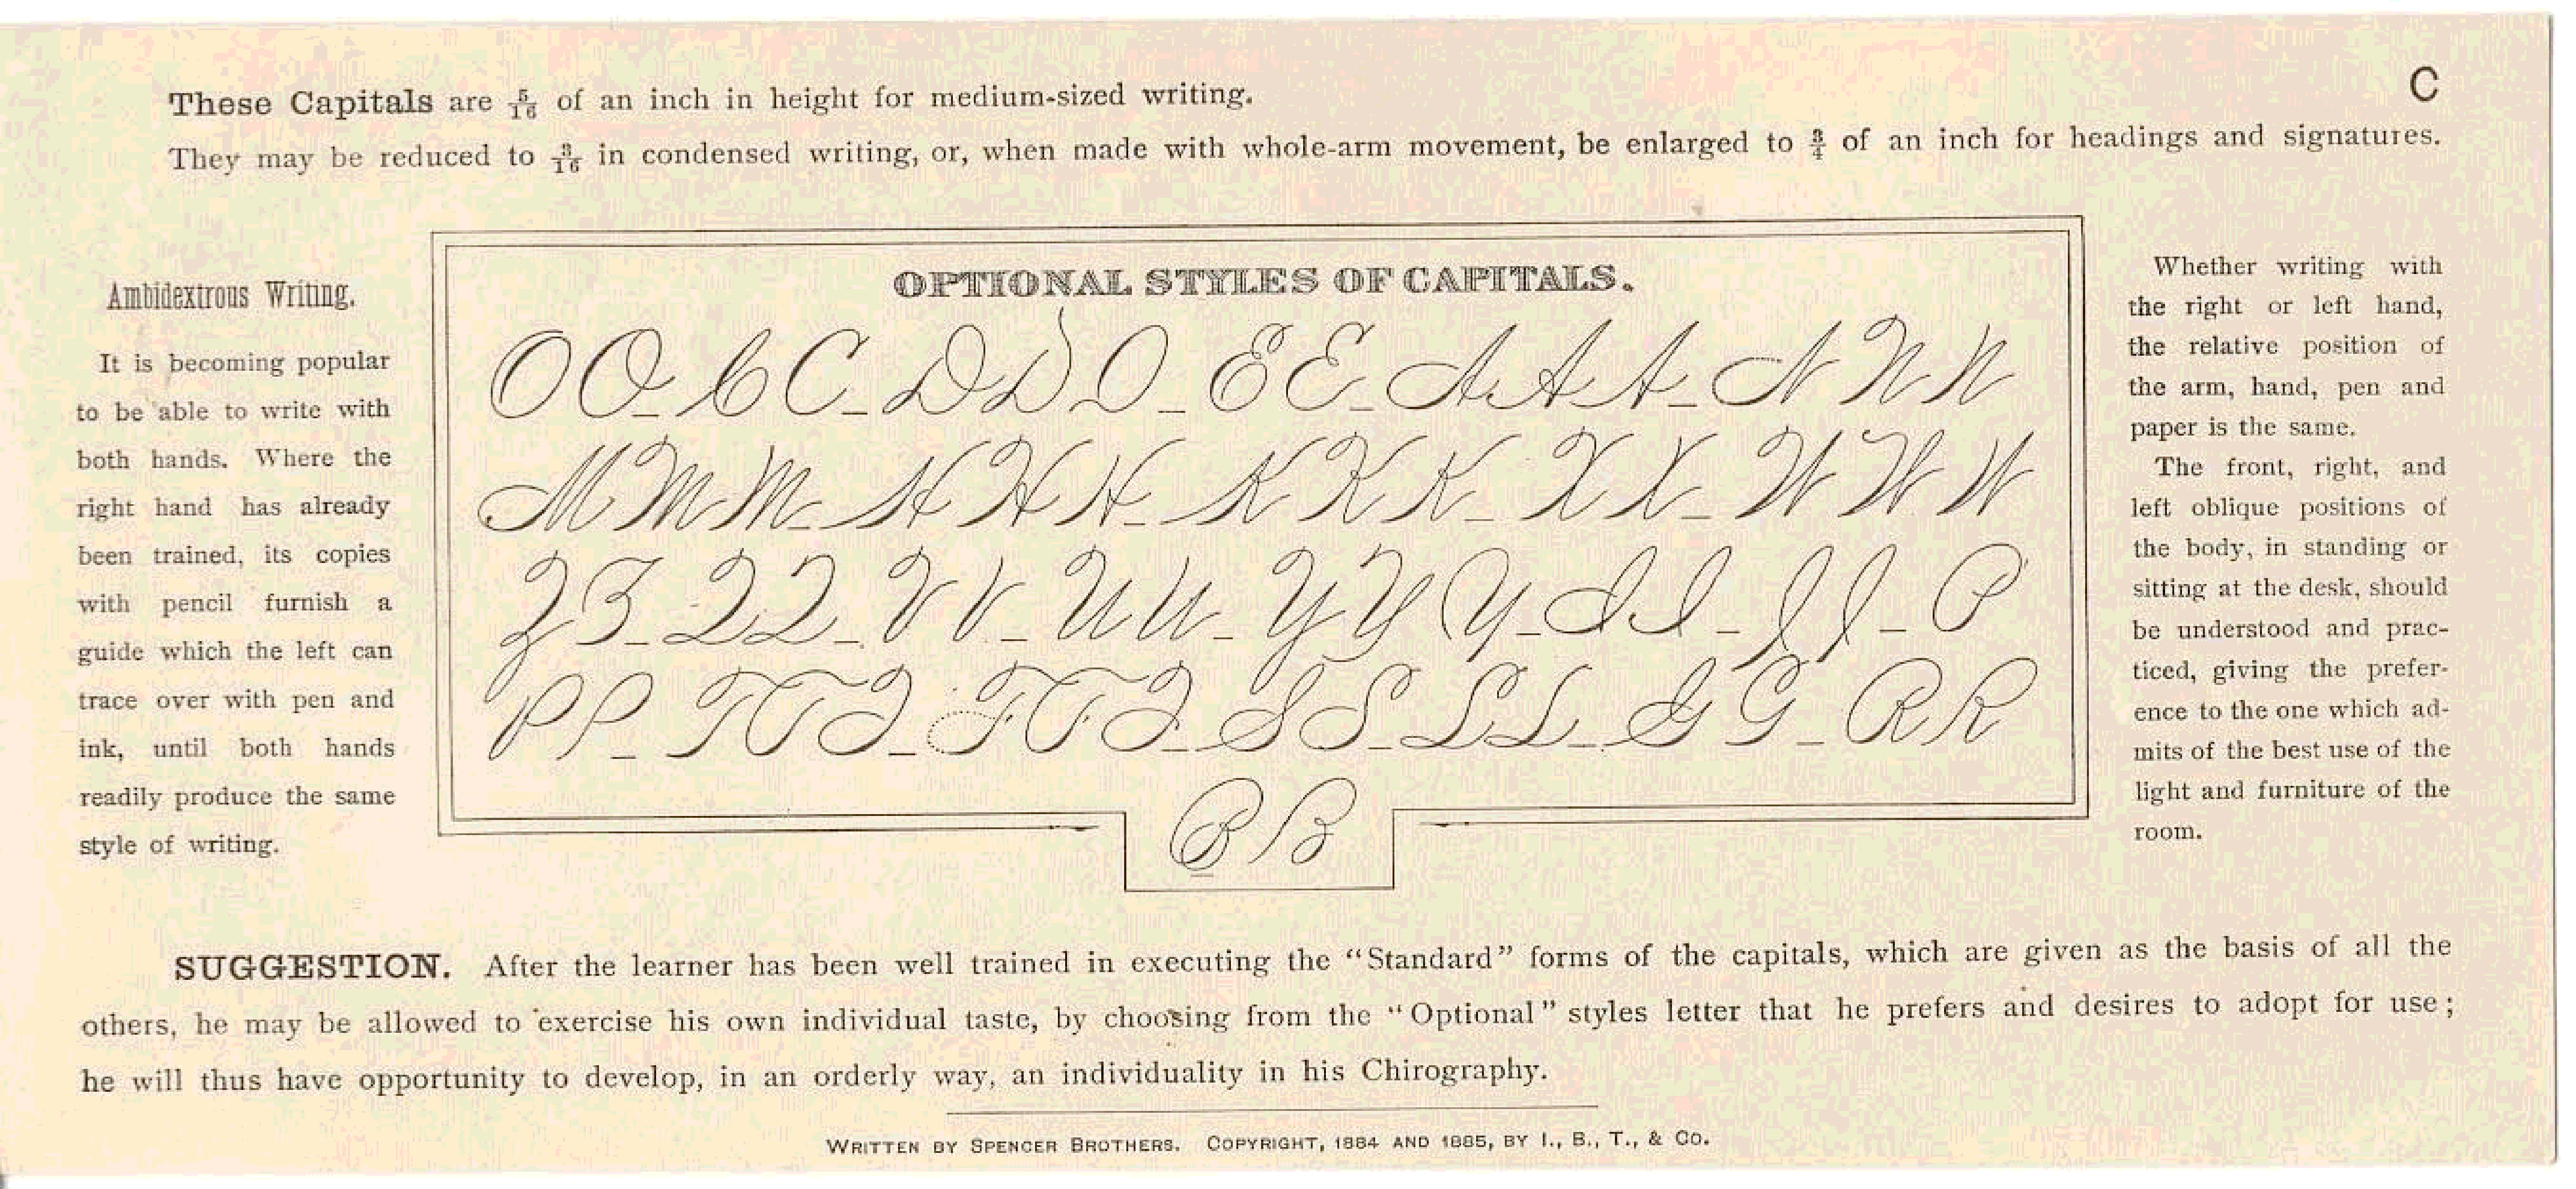 C
These Capitals are 5/16 of an inch in height for medium-sized writing.
They may be reduced to 3/16 in condensed writing, or, when made with whole-arm movement, be enlarged to 3/4 of an inch for headings and signatures.
Ambidextrous Writing.
It is becoming popular
to be able to write with
both hands. Where the
right hand has already
been trained, its copies
with pencil furnish a
guide which the left can
trace over with pen and
ink, until both hands
readily produce the same
style of writing.
OPTIONAL STYLES OF CAPITALS.
O O C C D D D E E A A A N N N
M M M H H H K K K X X W W W
Z Z Q Q V V U U Y Y Y I I J J P
P P T T T F F F S S L L G G R R
B B
Whether writing with
the right or left hand,
the relative position of
the arm, hand, pen and
paper is the same.
The front, right, and
left oblique positions of
the body, in standing or
sitting at the desk, should
be understood and prac-
ticed, giving the prefer-
ence to the one which ad-
mits of the best use of the
light and furniture of the
room.
SUGGESTION. After the learner has been well trained in executing the “Standard” forms of the capitals, which are given as the basis of all the
others, he may be allowed to exercise his own individual taste, by choosing from the “Optional” styles letter that he prefers and desires to adopt for use;
he will thus have opportunity to develop, in an orderly way, an individuality in his Chirography.
WRITTEN BY SPENCER BROTHERS. COPYRIGHT, 1884 AND 1885, BY I., B., T., & CO.